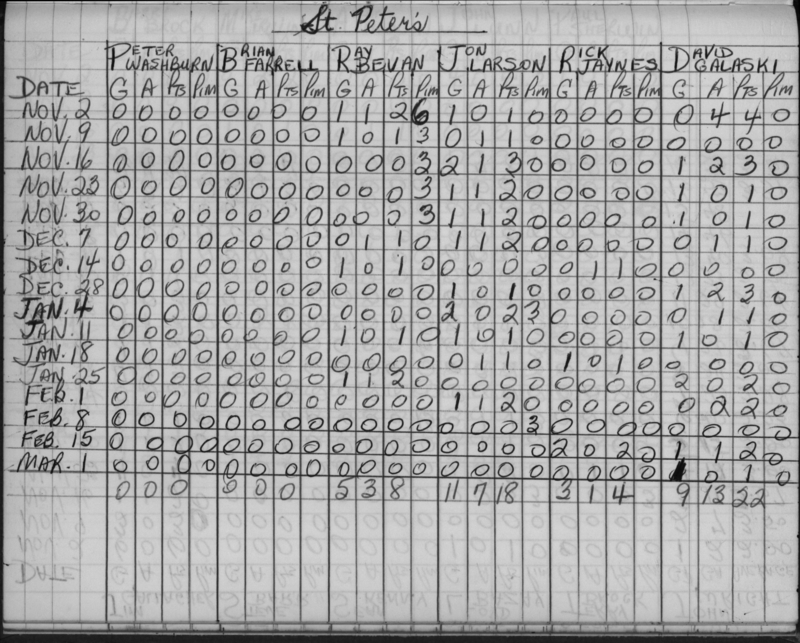 St. Peter's
PETER BRIAN RAY JON RICK DAVID
WASHBURN FARRELL BEVAN LARSON JAYNES GALASKI
DATE G A PTS PIM G A PTS PIM G A PTS PIM G A PTS PIM G A PTS PIM G A PTS PIM
NOV. 2 0 0 0 0 0 0 0 0 1 1 2 6 1 0 1 0 0 0 0 0 0 4 4 0
NOV. 9 0 0 0 0 0 0 0 0 1 0 1 3 0 1 1 0 0 0 0 0 0 0 0 0
NOV. 16 0 0 0 0 0 0 0 0 0 0 0 3 2 1 3 0 0 0 0 0 1 2 3 0
NOV. 23 0 0 0 0 0 0 0 0 0 0 0 3 1 1 2 0 0 0 0 0 1 0 1 0
NOV. 30 0 0 0 0 0 0 0 0 0 0 0 3 1 1 2 0 0 0 0 0 1 0 1 0
DEC. 7 0 0 0 0 0 0 0 0 0 1 1 0 1 1 2 0 0 0 0 0 0 1 1 0
DEC. 14 0 0 0 0 0 0 0 0 1 0 1 0 0 0 0 0 0 1 1 0 0 0 0 0
DEC. 28 0 0 0 0 0 0 0 0 0 0 0 0 1 0 1 0 0 0 0 0 1 2 3 0
JAN. 4 0 0 0 0 0 0 0 0 0 0 0 0 2 0 2 3 0 0 0 0 0 1 1 0
JAN. 11 0 0 0 0 0 0 0 0 1 0 1 0 1 0 1 0 0 0 0 0 1 0 1 0
JAN. 18 0 0 0 0 0 0 0 0 0 0 0 0 0 1 1 0 1 0 1 0 0 0 0 0
JAN. 25 0 0 0 0 0 0 0 0 1 1 2 0 0 0 0 0 0 0 0 0 2 0 2 0
FEB. 1 0 0 0 0 0 0 0 0 0 0 0 0 1 1 2 0 0 0 0 0 0 2 2 0
FEB. 8 0 0 0 0 0 0 0 0 0 0 0 0 0 0 0 3 0 0 0 0 0 0 0 0
FEB. 15 0 0 0 0 0 0 0 0 0 0 0 0 0 0 0 0 2 0 2 0 1 1 2 0
MAR. 1 0 0 0 0 0 0 0 0 0 0 0 0 0 0 0 0 0 0 0 0 1 0 1 0
0 0 0 0 0 0 5 3 8 11 7 18 3 1 4 9 13 22